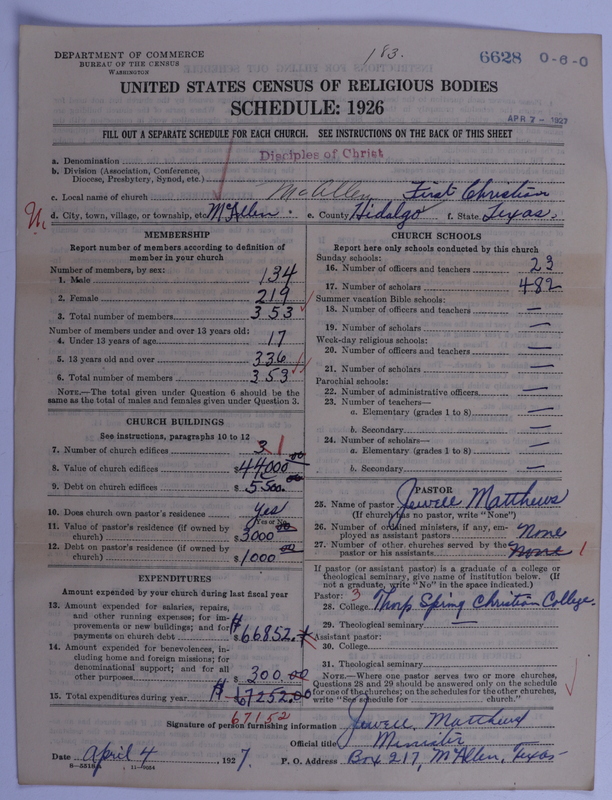 183.
DEPARTMENT OF COMMERCE
BUREAU OF THE CENSUS
WASHINGTON
6628 0-6-0
UNITED STATES CENSUS OF RELIGIOUS BODIES
SCHEDULE: 1926
APR 7 - 1927
FILL OUT A SEPARATE SCHEDULE FOR EACH CHURCH. SEE INSTRUCTIONS ON THE BACK OF THIS SHEET
a. Denomination Disciples of Christ
b. Division (Association, Conference, Diocese, Presbytery, Synod, etc.)
c. Local name of church McAllen First Christian
d. City, town, village, or township, etc. McAllen. e. County Hidalgo f. State Texas.
MEMBERSHIP
Report number of members according to definition of member in your church
Number of members, by sex:
1. Male 134
2. Female 219
3. Total number of members 353
Number of members under and over 13 years old:
4. Under 13 years of age 17
5. 13 years old and over 336
6. Total number of members 353
NOTE.—The total given under Question 6 should be the same as the total of males and females given under Question 3.
CHURCH BUILDINGS
See instructions, paragraphs 10 to 12
7. Number of church edifices 3 1
8. Value of church edifices $44000 00
9. Debt on church edifices $5500.00
10. Does church own pastor's residence yes
Yes or No
11. Value of pastor's residence (if owned by church) $3000 00
12. Debt on pastor's residence (if owned by church) $1000 00
EXPENDITURES
Amount expended by your church during last fiscal year
13. Amount expended for salaries, repairs, and other running expenses; for improvements or new buildings; and for payments on church debt $66852.
14. Amount expended for benevolences, including home and foreign missions; for denominational support; and for all other purposes $300.00
15. Total expenditures during year $67252.00
67152
CHURCH SCHOOLS
Report here only schools conducted by this church
Sunday schools:
16. Number of officers and teachers 23
17. Number of scholars 482
Summer vacation Bible schools:
18. Number of officers and teachers —
19. Number of scholars —
Week-day religious schools:
20. Number of officers and teachers —
21. Number of scholars —
Parochial schools:
22. Number of administrative officers —
23. Number of teachers—
a. Elementary (grades 1 to 8) —
b. Secondary —
24. Number of scholars—
a. Elementary (grades 1 to 8) —
b. Secondary —
PASTOR
25. Name of pastor Jewell Matthews
(If church has no pastor, write "None")
26. Number of ordained ministers, if any, employed as assistant pastors None
27. Number of other churches served by the pastor or his assistants None 1
If pastor (or assistant pastor) is a graduate of a college or theological seminary, give name of institution below. (If not a graduate, write "No" in the space indicated.)
Pastor: 3
28. College Thorp Spring Christian College.
29. Theological seminary
Assistant pastor:
30. College
31. Theological seminary
NOTE.—Where one pastor serves two or more churches, Questions 28 and 29 should be answered only on the schedule for one of the churches; on the schedules for the other churches, write "See schedule for church."
Signature of person furnishing information Jewell Matthews
Official title Minister
Date April 4, 1927. P. O. Address Box 217, McAllen, Texas-
8-5518a 11-9064